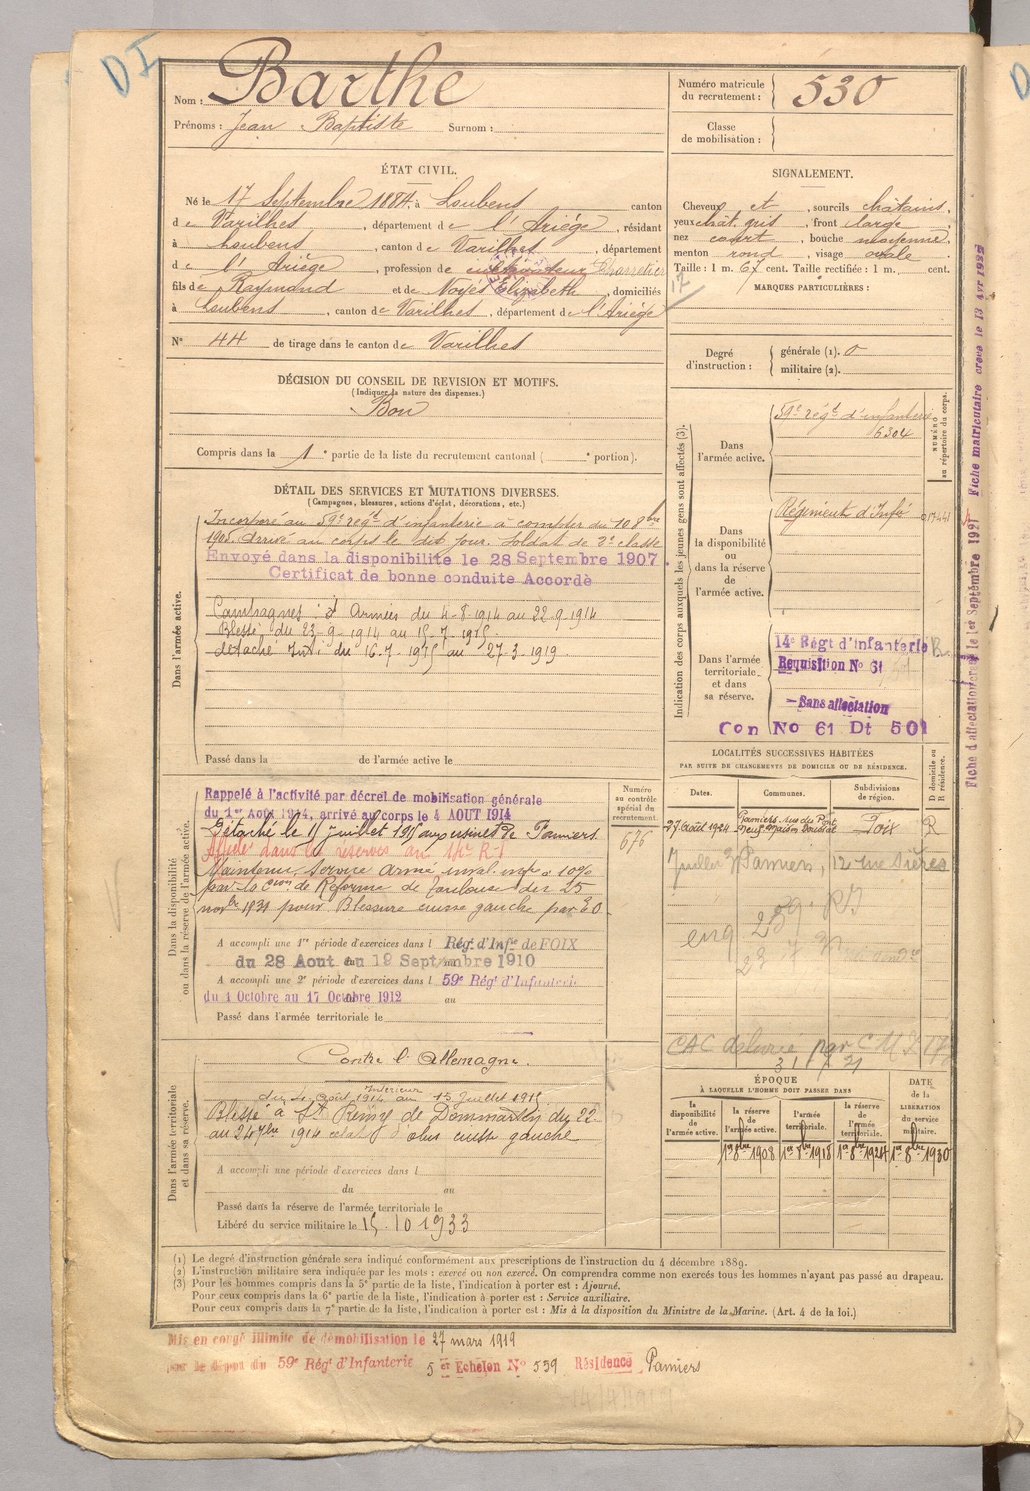 DI
Nom : Barthe
Prénoms : Jean Baptiste Surnom :
Numéro matricule du recrutement : 530
Classe de mobilisation :
ÉTAT CIVIL.
Né le 17 Septembre 1884, à Loubens canton
de Varilhes, département de l'Ariège, résidant
à Loubens, canton de Varilhes, département
de l'Ariège, profession de cultivateur Charretier
fils de Raymond et de Noyès Elizabeth, domiciliés
à Loubens, canton de Varilhes, département de l'Ariège
N° 44 de tirage dans le canton de Varilhes
SIGNALEMENT.
Cheveux et , sourcils châtains,
yeux chât. gris, front large
nez court, bouche moyenne,
menton rond, visage ovale
Taille : 1 m. 67 cent. Taille rectifiée : 1 m. cent.
MARQUES PARTICULIÈRES :
Degré d'instruction :
générale (1). 0
militaire (2).
DÉCISION DU CONSEIL DE REVISION ET MOTIFS.
(Indiquer la nature des dispenses.)
Bon
Compris dans la 1e partie de la liste du recrutement cantonal ( e portion).
DÉTAIL DES SERVICES ET MUTATIONS DIVERSES.
(Campagnes, blessures, actions d'éclat, décorations, etc.)
Dans l'armée active.
Incorporé au 59e régt d'infanterie à compter du 10 8bre
1905. Arrivé au corps le dit jour. Soldat de 2e classe
Envoyé dans la disponibilité le 28 Septembre 1907.
Certificat de bonne conduite Accordé
Campagnes : Armées du 4-8-1914 au 22-9-1914
Blessé du 23-9-1914 au 15-7-1915
détaché du 16-7-1915 au 27-3-1919
Passé dans la de l'armée active le
Indication des corps auxquels les jeunes gens sont affectés (3).
NUMÉRO au répertoire du corps.
Dans l'armée active.
59e régt d'infanterie
6304
Dans la disponibilité ou dans la réserve de l'armée active.
Régiment d'Infie
Dans l'armée territoriale et dans sa réserve.
14e Régt d'infanterie
Requisition N° 61
Sans affectation
Con No 61 Dt 501
Fiche d'affectation creee le 1er Septembre 1921 Fiche matriculaire creee le 13 Avr 1922
LOCALITÉS SUCCESSIVES HABITÉES
PAR SUITE DE CHANGEMENTS DE DOMICILE OU DE RÉSIDENCE.
Dates. Communes. Subdivisions de région. D domicile ou R résidence.
27 Août 1924 Pamiers, rue du Pont Neuf Foix R
Juillet Pamiers, 12
CAC délivrée par
Dans la disponibilité ou dans la réserve de l'armée active.
Numéro au contrôle spécial du recrutement.
676
Rappelé à l'activité par décret de mobilisation générale
du 1er Aout 1914, arrivé au corps le 4 AOUT 1914
Détaché le 15 juillet 1915 aux usines de Pamiers
Affecté dans les réserves au 14e R.I
Maintenu Service Armé inval. infre à 10%
par la Con de Réforme de Toulouse du 25
novbre 1931 pour Blessure cuisse gauche par E.O.
A accompli une 1re période d'exercices dans l Régt d'Infie de FOIX
du 28 Aout au 19 Septembre 1910
A accompli une 2e période d'exercices dans l 59e Régt d'Infanterie
du 1 Octobre au 17 Octobre 1912 au
Passé dans l'armée territoriale le
Dans l'armée territoriale et dans sa réserve.
Contre l'Allemagne.
Intérieur
du 4 Août 1914 au 15 Juillet 1915
Blessé à St Rémy de Dommartin du 22
au 24 7bre 1914 éclat d'obus cuisse gauche
A accompli une période d'exercices dans l
du au
Passé dans la réserve de l'armée territoriale le
Libéré du service militaire le 15-10 1933
ÉPOQUE
À LAQUELLE L'HOMME DOIT PASSER DANS
DATE DE LA LIBÉRATION du service militaire.
la disponibilité de l'armée active. la réserve de l'armée active. l'armée territoriale. la réserve de l'armée territoriale.
1er 8bre 1908 1er 8bre 1918 1er 8bre 1924 1er 8bre 1930
(1) Le degré d'instruction générale sera indiqué conformément aux prescriptions de l'instruction du 4 décembre 1889.
(2) L'instruction militaire sera indiquée par les mots : exercé ou non exercé. On comprendra comme non exercés tous les hommes n'ayant pas passé au drapeau.
(3) Pour les hommes compris dans la 5e partie de la liste, l'indication à porter est : Ajourné.
Pour ceux compris dans la 6e partie de la liste, l'indication à porter est : Service auxiliaire.
Pour ceux compris dans la 7e partie de la liste, l'indication à porter est : Mis à la disposition du Ministre de la Marine. (Art. 4 de la loi.)
Mis en congé illimité de démobilisation le 27 mars 1919
par le dépôt du 59e Régt d'Infanterie 5 er Echelon N° 539 Résidence Pamiers